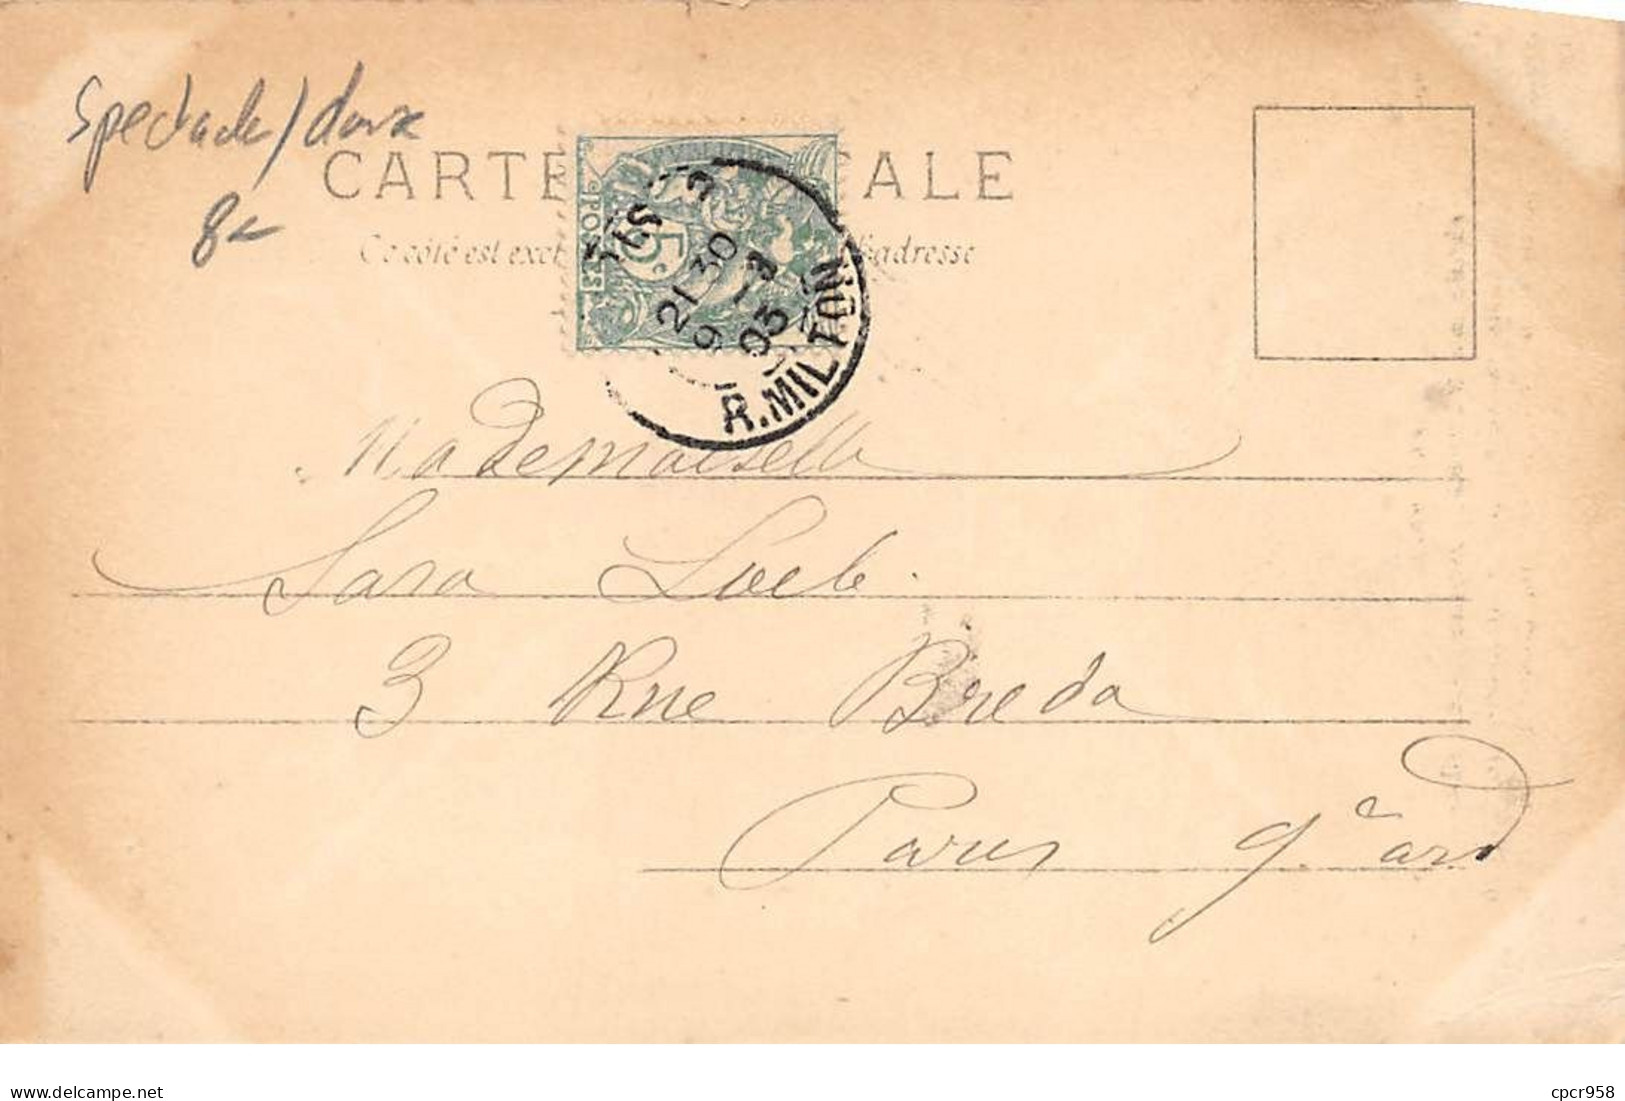 Spectacle / danse
8-
CARTE ALE
Ce côté est exc l'adresse
POSTES
5
21 30
9 - 2
03
R. MILTON
Mademoiselle
Sara Loeb.
3 Rue Breda
Paris 9.e ard
delcampe.net
cpcr958